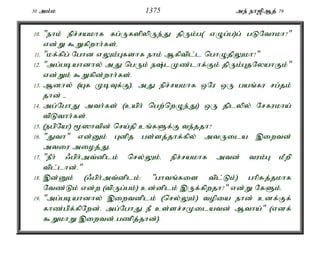 30 அம்ம 1375 அந் நாஜிஆத் 79
10. "நாம் நிச்சயமாக கப்ருகளிலிருந்து திரும்ப( எழுப்ப)ப் படுவோமா?"
என்று கூறுகிறார்கள்.
11. "மக்கிப் போன எலும்புகளாக நாம் ஆகிவிட்ட பொழுதிலுமா?"
12. "அப்படியானால் அது பெரும் நஷ்டமுண்டாக்கும் திரும்புதலேயாகும்"
என்றும் கூறுகின்றார்கள்.
13. ஆனால் (யுக முடிவுக்கு), அது நிச்சயமாக ஒரே ஒரு பயங்கர சப்தம்
தான் -
14. அப்போது அவர்கள் (உயிர் பெற்றெழுந்து) ஒரு திடலில் சேகரமாய்
விடுவார்கள்.
15. (நபியே!) மூஸாவின் செய்தி உங்களுக்கு வந்ததா?
16. "துவா" என்னும் புனித பள்ளத்தாக்கில் அவருடைய இறைவன்
அவரை அழைத்து,
17. "நீர் ஃபிர்அவ்னிடம் செல்லும், நிச்சயமாக அவன் வரம்பு மீறி
விட்டான்."
18. இன்னும் (ஃபிர்அவ்னிடம்: "பாவங்களை விட்டும்) பரிசுத்தமாக
வேண்டும் என்ற (விருப்பம்) உன்னிடம் இருக்கிறதா?" என்று கேளும்.
19. "அப்படியானால் இறைவனிடம் (செல்லும்) வழியை நான் உனக்குக்
காண்பிக்கிறேன், அப்போது நீ உள்ளச்சமுடையவன் ஆவாய்" (எனக்
கூறுமாறு இறைவன் பணித்தான்).